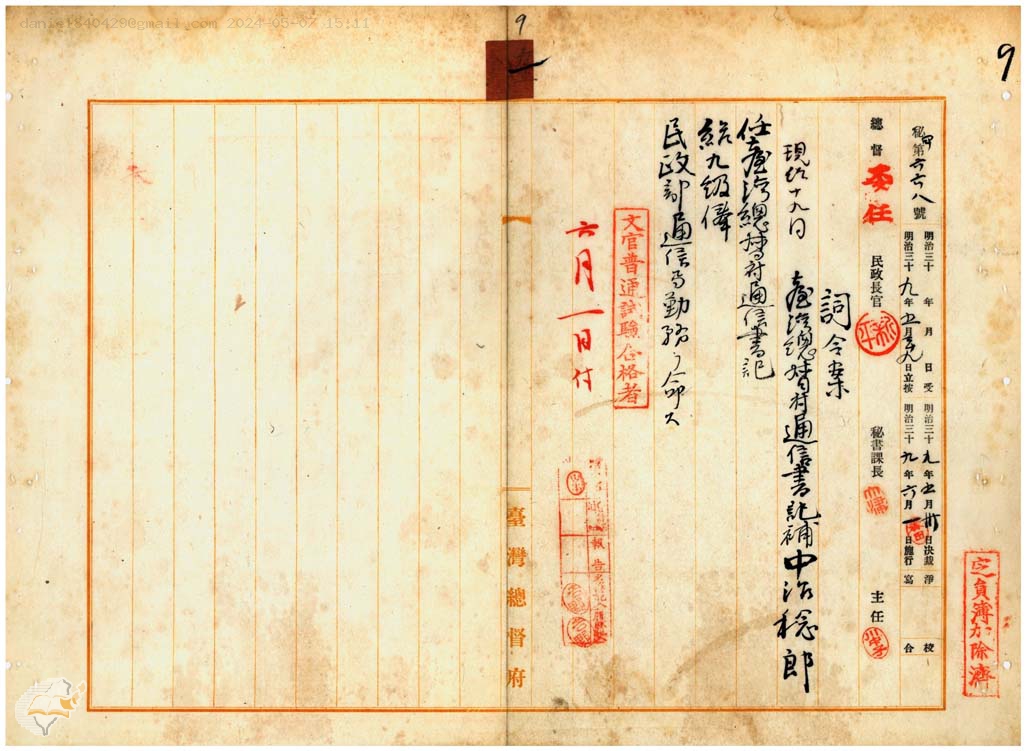 daniel540428@gmail.com 2024-05-07 15:11
9
9
秘甲第六六八號
明治三十 年 月 日受
明治三十九年五月廿九日立按
明治三十九年五月卅日決裁
明治三十九年六月一日施行
淨寫
校合
總督 委任
民政長官
秘書課長
主任
詞令案
臺灣總督府通信書記補 中治稔郎
現給十九円
任臺灣總督府通信書記
給九級俸
民政部通信局勤務ヲ命ス
文官普通試驗合格者
六月一日付
報告
定員簿加除濟
臺灣總督府